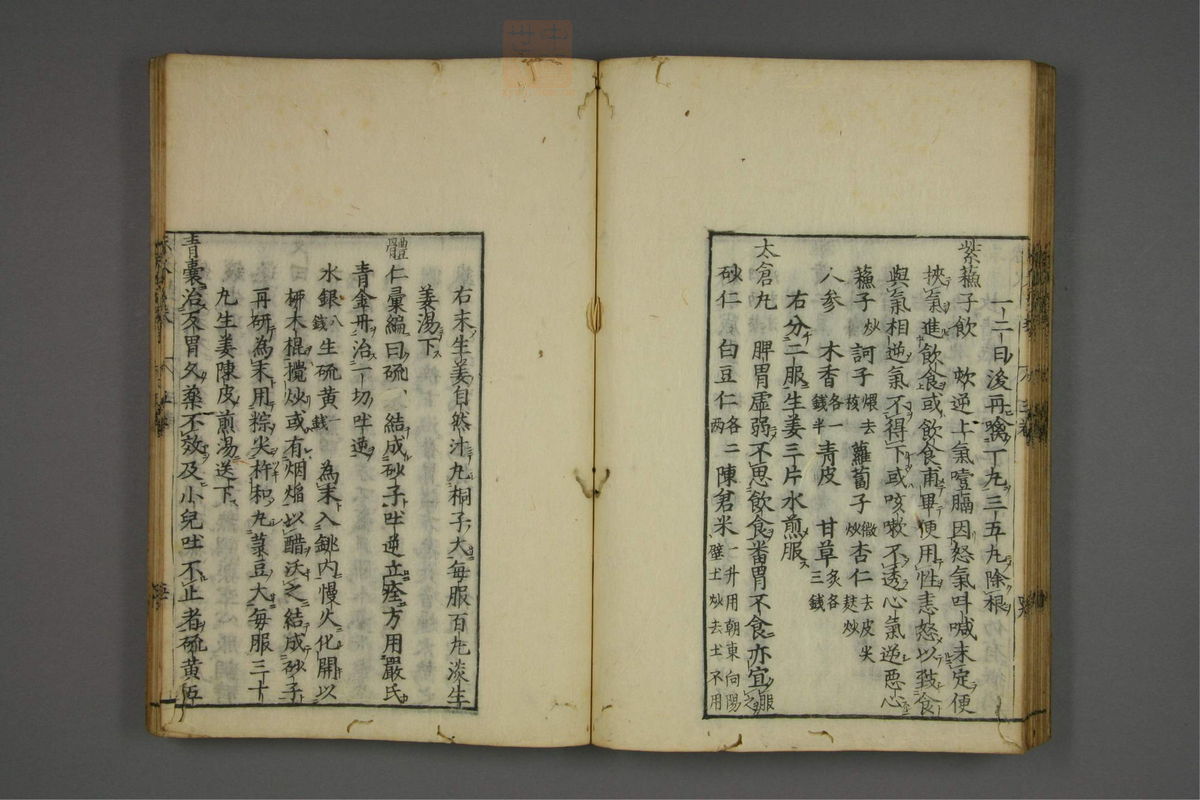 一二日後再噙丁丸三五丸除根
紫蘓子飲　欬逆上氣噎膈因怒氣呌喊未定便
挾氣進飲食或飲食甫畢便用性恚怒以致食
與氣相逆氣不得下或咳嗽不透心氣逆惡心
蘓子炒訶子煨去核蘿蔔子微炒杏仁去皮尖麸炒
人参　木香各一錢半青皮　甘草炙各三錢
右分二服生姜三片水煎服
太倉丸　脾胃虚弱不思飲食畨胃不食亦宜服之
砂仁　白豆仁各二两陳倉米一升用朝東向陽壁土炒去土不用
右末生姜自然汁丸桐子大每服百丸淡生
姜湯下
體仁彙編曰硫　結成砂子吐逆立痊方用嚴氏
青金丹治一切吐逆
水銀八錢生硫黄一錢　為末入銚内慢火化開以
柳木棍攪炒或有烟焰以醋沃之結成砂子
再研為末用粽尖杵和丸菉豆大每服三十
九生姜陳皮煎湯送下
青囊治反胃久藥不效及小兒吐不止者硫黄